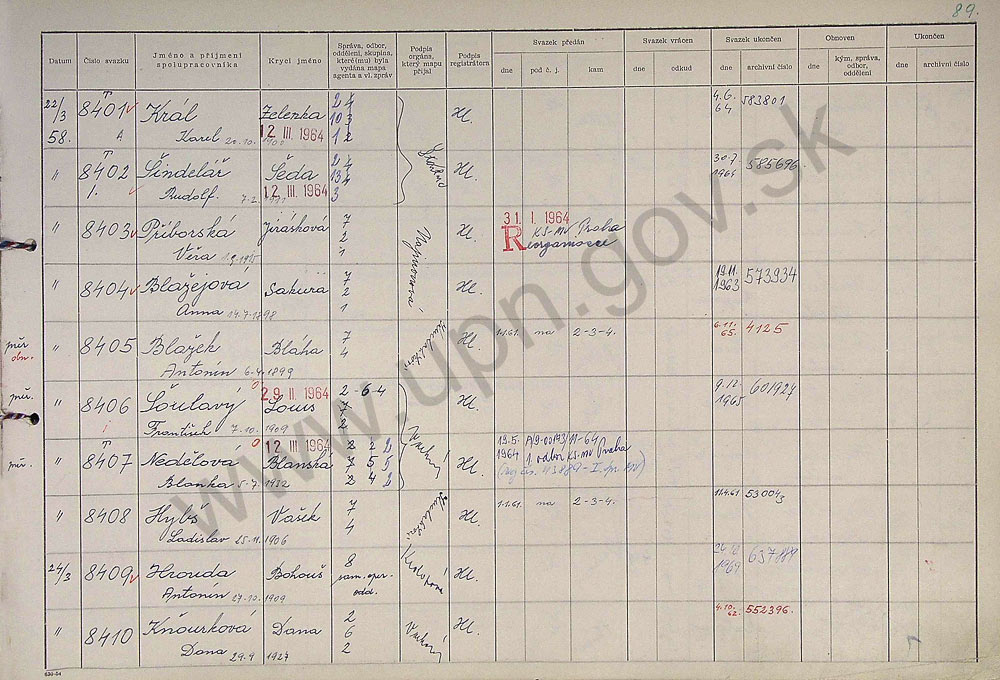 89.
Datum
Číslo svazku
Jméno a příjmení spolupracovníka
Krycí jméno
Správa, odbor, oddělení, skupina, které(mu) byla vydána mapa agenta a vl. zpráv
Podpis orgána, který mapu přijal
Podpis registrátora
Svazek předán
dne pod č. j. kam
Svazek vrácen
dne odkud
Svazek ukončen
dne archivní číslo
Obnoven
dne kým, správa, odbor, oddělení
Ukončen
dne archivní číslo
22/3 8401 Král Zelenka 2 4 Hl. 4.6. 583801
58. A Karel 12 III. 1964 10 3 64
1 2
" 8402 Šindelář Šeda 2 4 Hl. 30.7 585696
1. Rudolf. 12 III. 1964 13 4 1964
3
" 8403 Příborská Jirásková 7 Hl. 31. I. 1964
Věra 2 R KS-MV Praha
" 8404 Blažejová Sakura 7 Hl. 19.11. 573934
Anna 14.7.1898 2 1963
1
" 8405 Blažek Bláha 7 Hl. 1.1.61. na 2-3-4. 6.11. 4125
Antonín 6.4.1899 4 65.
" 8406 Šoulavý 29 II 1964 2-6-4 Hl. 9.12. 601927
František 7.10.1909 Louis 7 1965
2
" 8407 Nedělová 12 III. 1964 2 2 2 Hl. 19.5.
Blanka 5.7.1932 Blanská 7 5 5 1964 1. odbor KS-MV Praha
2 4 2
" 8408 Hybš Vašek 7 Hl. 1.1.61. na 2-3-4. 53004
Ladislav 25.11.1906 4
24/3 8409 Hrouda Bohouš 8 Hl.
Antonín 27.10.1909 sam. oper. odd. 1969
" 8410 Kňourková Dana 2 Hl. 4.10. 552396.
Dana 29.9 1927 6 62.
2
www.upn.gov.sk